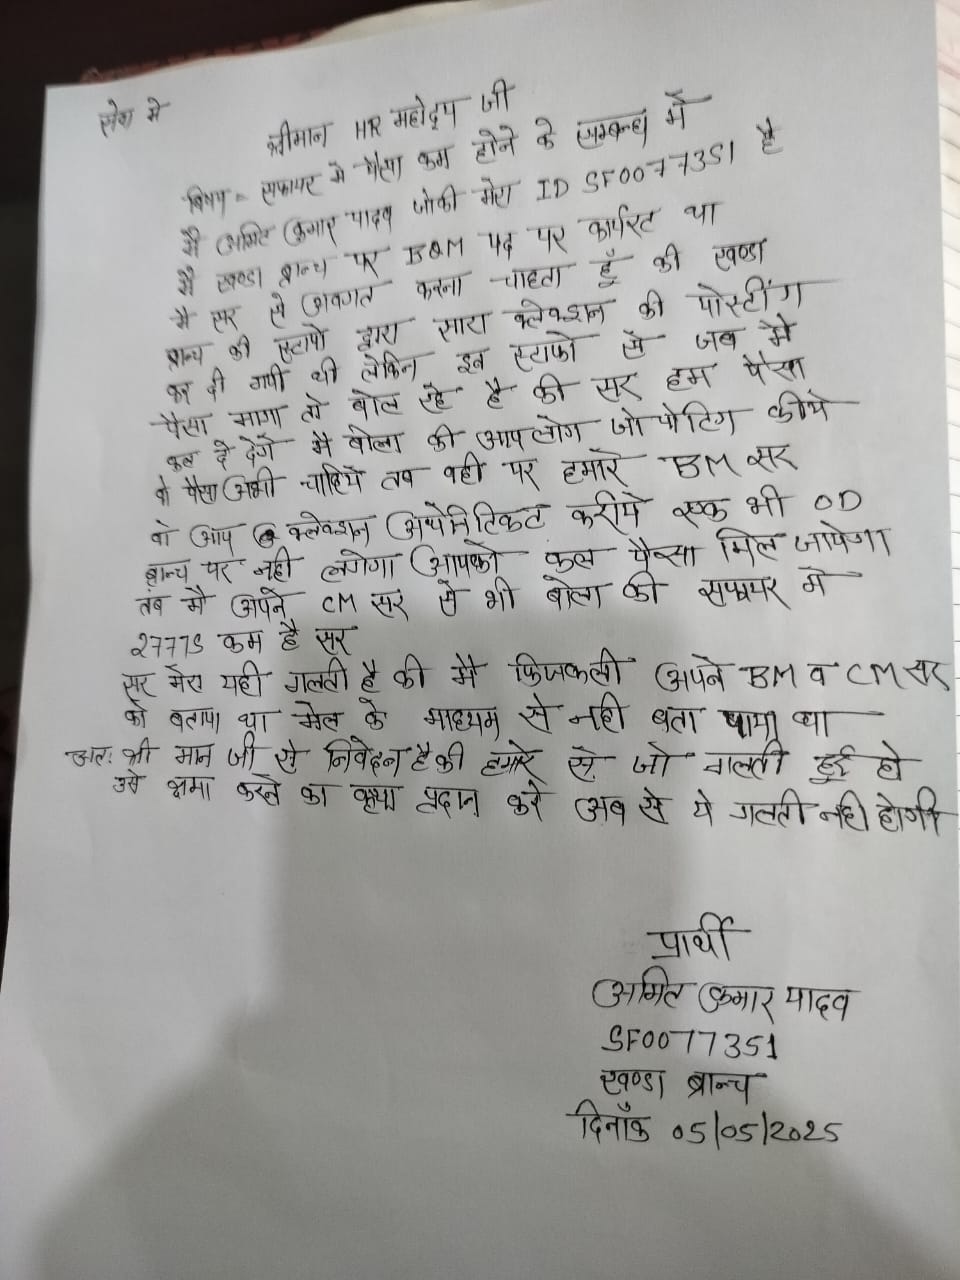 सेवा मे
श्रीमान HR महोदय जी
विषय = सफायर मे पैसा कम होने के सम्बन्ध में
मै अमित कुमार यादव जोकी मेरा ID SF0077351 है
मै खण्डा ब्रान्च पर BQM पद पर कार्यरत था
मै सर से अवगत करना चाहता हूँ की खण्डा
ब्रान्च की स्टापो द्वारा सारा क्लेक्शन की पोस्टींग
कर दी गयी थी लेकिन इन स्टाफो से जब मे
पैसा मागा तो बोल रहे है की सर हम पैसा
कल दे देगें मै बोला की आपलोग जो पोटिग कीये
वो पैसा अभी चाहिये तब वही पर हमारे BM सर
वो आप क्लेक्शन अथेन्टिकेट करीये एक भी OD
ब्रान्च पर नही लगेगा आपको कल पैसा मिल जायेगा
तब मै अपने CM सर से भी बोला की सफायर मे
27775 कम है सर
सर मेरा यही गलती है की मै फिजकली अपने BM व CM सर
को बताया था मेल के माध्यम से नही बता पाया था
अतः श्री मान जी से निवेदन है की हमारे से जो गलती हुई हो
उसे क्षमा करने का कृपा प्रदान करे अब से ये गलती नही होगी
प्रार्थी
अमित कुमार यादव
SF0077351
खण्डा ब्रान्च
दिनाँक 05/05/2025